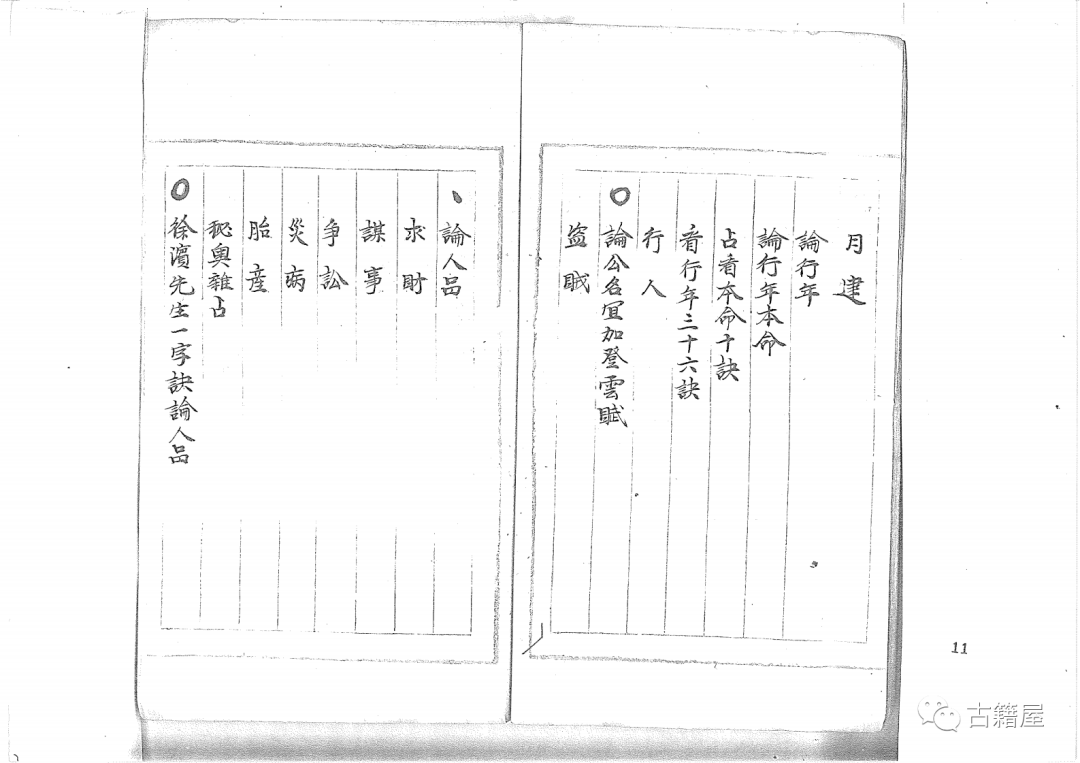 月建
論行年
論行年本命
占看本命十訣
看行年三十六訣
行人
〇論公名宜加登雲賦
盜賊
、論人品
求財
謀事
爭訟
災病
胎產
秘奧雜占
〇徐濵先生一字訣論人品
11
古籍屋